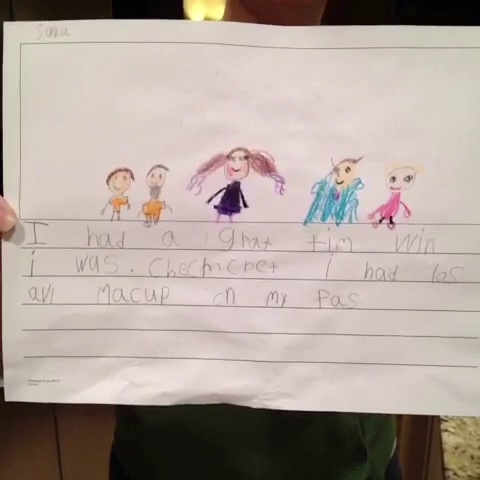 Sonia
I had a ghat tim win
i was. chechcret i had los
avi macup on my fas